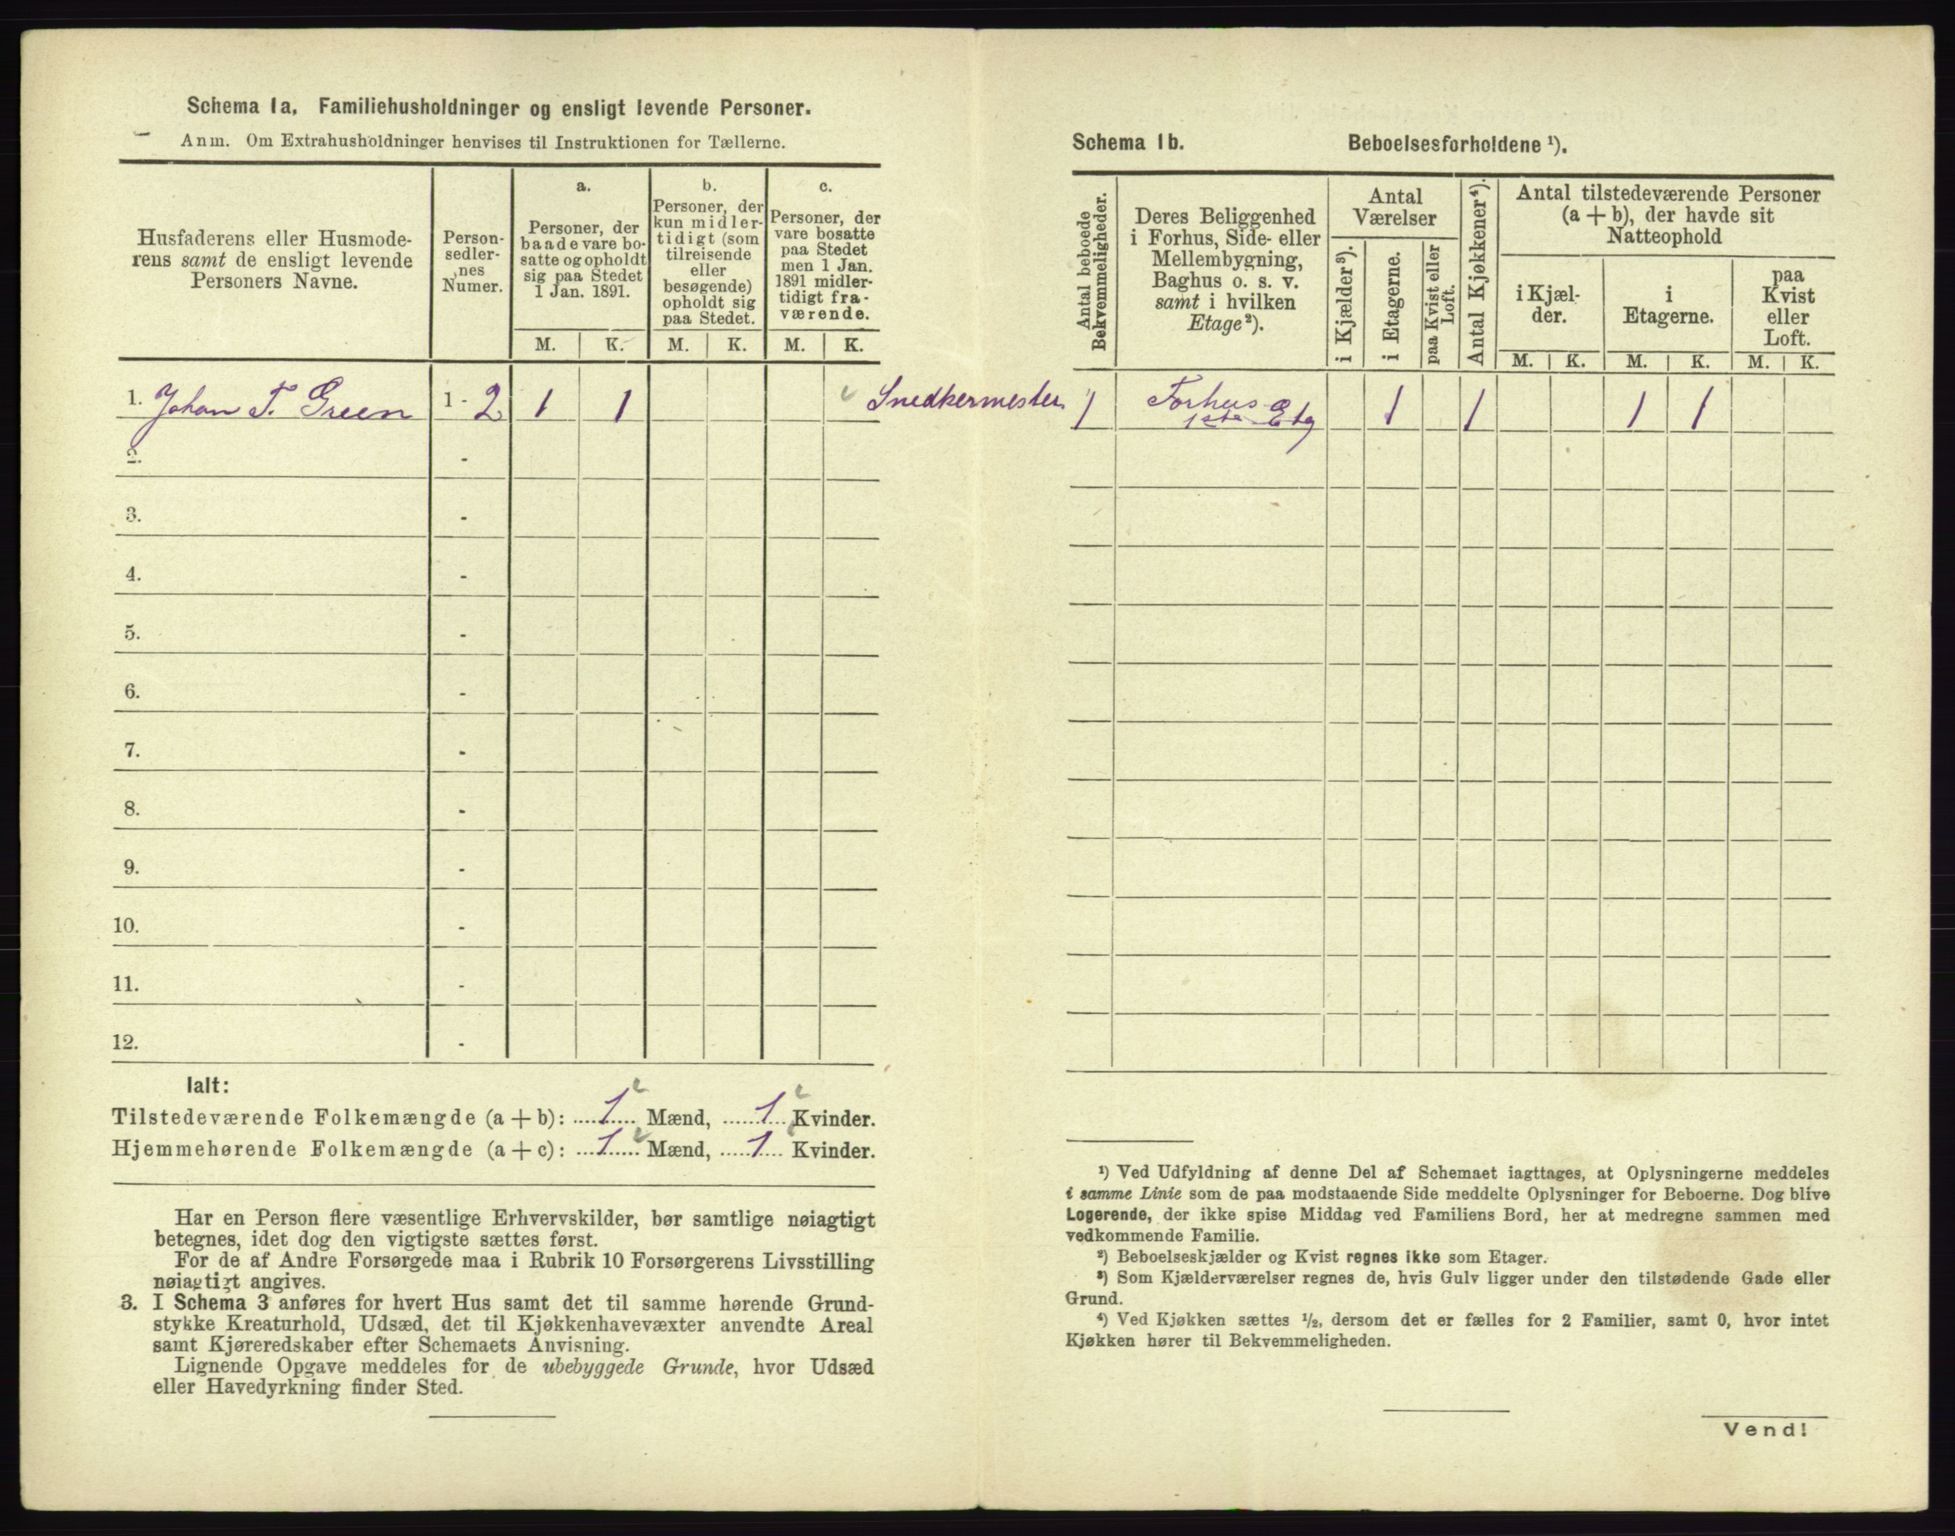 Schema 1a. Familiehusholdninger og ensligt levende Personer.
Anm. Om Extrahusholdninger henvises til Instruktionen for Tællerne.
Husfaderens eller Husmode-
rens samt de ensligt levende
Personers Navne.
Person-
sedler-
nes
Numer.
a.
Personer, der
baade vare bo-
satte og opholdt
sig paa Stedet
1 Jan. 1891.
b.
Personer, der
kun midler-
tidigt (som
tilreisende
eller
besøgende)
opholdt sig
paa Stedet.
c.
Personer, der
vare bosatte
paa Stedet
men 1 Jan.
1891 midler-
tidigt fra-
værende.
M. K. M. K. M. K.
1. Johan T. Green 1 - 2 1 1 Snedkermester
2. -
3. -
4. -
5. -
6. -
7. -
8. -
9. -
10. -
11. -
12. -
Ialt:
Tilstedeværende Folkemængde (a + b): 1 Mænd, 1 Kvinder.
Hjemmehørende Folkemængde (a + c): 1 Mænd, 1 Kvinder.
Har en Person flere væsentlige Erhvervskilder, bør samtlige nøiagtigt
betegnes, idet dog den vigtigste sættes først.
For de af Andre Forsørgede maa i Rubrik 10 Forsørgerens Livsstilling
nøiagtigt angives.
3. I Schema 3 anføres for hvert Hus samt det til samme hørende Grund-
stykke Kreaturhold, Udsæd, det til Kjøkkenhavevæxter anvendte Areal
samt Kjøreredskaber efter Schemaets Anvisning.
Lignende Opgave meddeles for de ubebyggede Grunde, hvor Udsæd
eller Havedyrkning finder Sted.
Schema 1b. Beboelsesforholdene ¹).
Antal beboede
Bekvemmeligheder.
Deres Beliggenhed
i Forhus, Side- eller
Mellembygning,
Baghus o. s. v.
samt i hvilken
Etage²).
Antal
Værelser
i Kjælder³).
i Etagerne.
paa Kvist eller
Loft.
Antal Kjøkkener⁴).
Antal tilstedeværende Personer
(a + b), der havde sit
Natteophold
i Kjæl-
der.
i
Etagerne.
paa
Kvist
eller
Loft.
M. K. M. K. M. K.
1 Forhus
1ste Etg 1 1 1 1
¹) Ved Udfyldning af denne Del af Schemaet iagttages, at Oplysningerne meddeles
i samme Linie som de paa modstaaende Side meddelte Oplysninger for Beboerne. Dog blive
Logerende, der ikke spise Middag ved Familiens Bord, her at medregne sammen med
vedkommende Familie.
²) Beboelseskjælder og Kvist regnes ikke som Etager.
³) Som Kjælderværelser regnes de, hvis Gulv ligger under den tilstødende Gade eller
Grund.
⁴) Ved Kjøkken sættes ½, dersom det er fælles for 2 Familier, samt 0, hvor intet
Kjøkken hører til Bekvemmeligheden.
Vend!